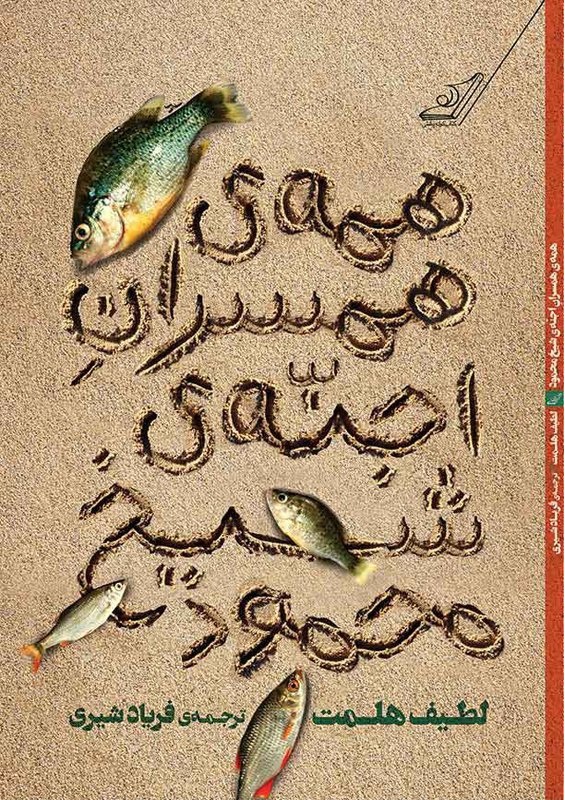 همه‌ی
همسرانِ
اجنّه‌ی
شیخ
محمود
لطیف هلمت
ترجمه‌ی فریاد شیری
همه‌ی همسرانِ اجنه‌ی شیخ محمود
لطیف هلمت
ترجمه‌ی فریاد شیری